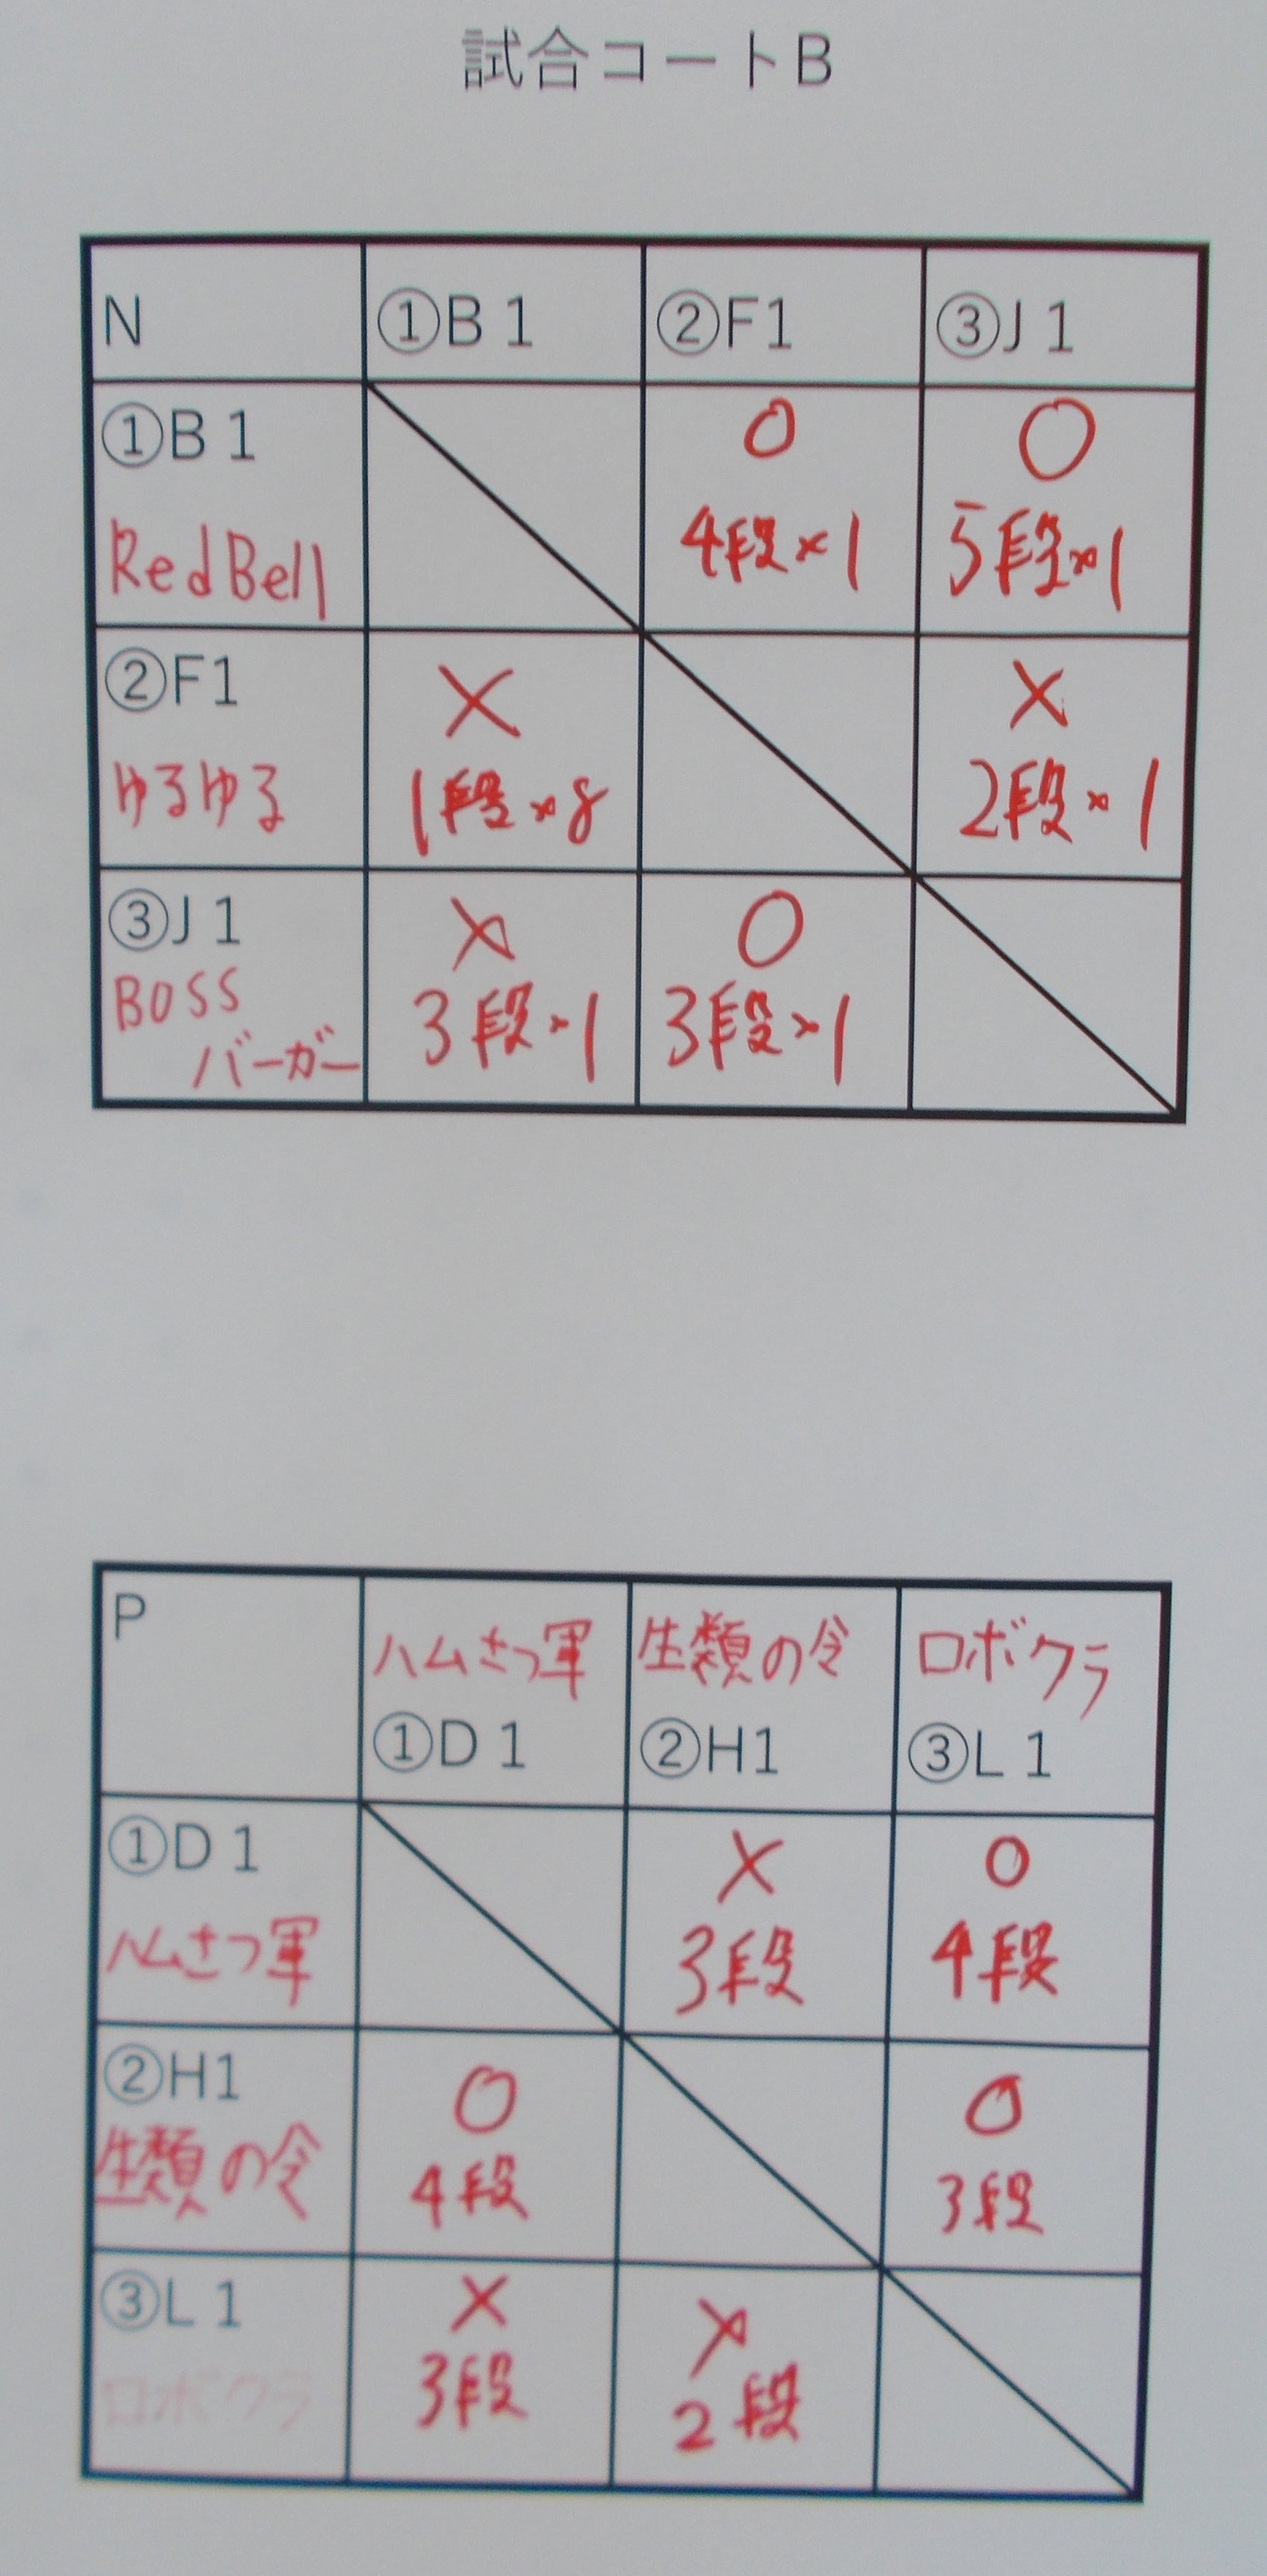 試合コートB
N ①B1 ②F1 ③J1
①B1 ○ ○
RedBell 4段×1 5段×1
②F1 × ×
ゆるゆる 1段×8 2段×1
③J1 × ○
BOSS 3段×1 3段×1
バーガー
P ハムさつ軍 生類の令 ロボクラ
①D1 ②H1 ③L1
①D1 × ○
ハムさつ軍 3段 4段
②H1 ○ ○
生類の令 4段 3段
③L1 × ×
ロボクラ 3段 2段